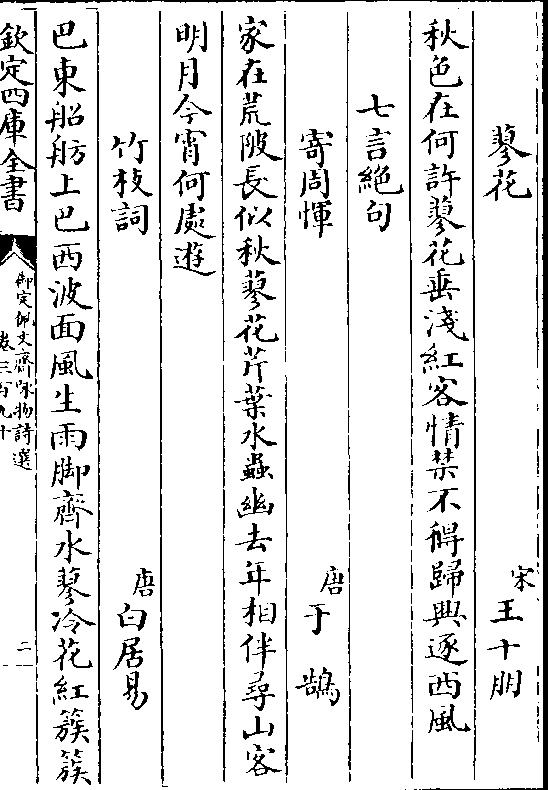 蓼花 宋 王十朋
秋色在何許蓼花垂淺紅客情禁不得歸興逐西風
七言絶句
寄周惲 唐 于鵠
家在荒陂長似秋蓼花芹葉水蟲幽去年相伴尋山客
明月今宵何處遊
竹枝詞 唐 白居易
巴東船舫上巴西波面風生雨脚齊水蓼冷花紅簇簇
欽定四庫全書 御定佩文齋詠物詩選 卷三百九十 二